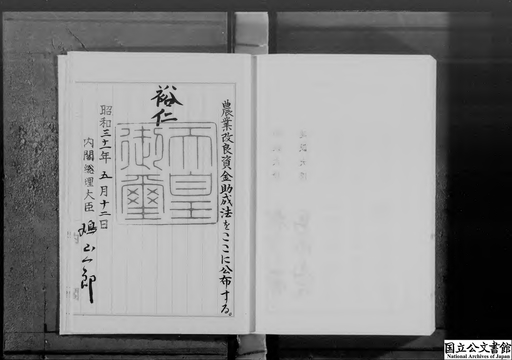 農業改良資金助成法をここに公布する。
裕仁
天皇御璽
昭和三十一年五月十二日
内閣総理大臣 鳩山一郎
国立公文書館
National Archives of Japan